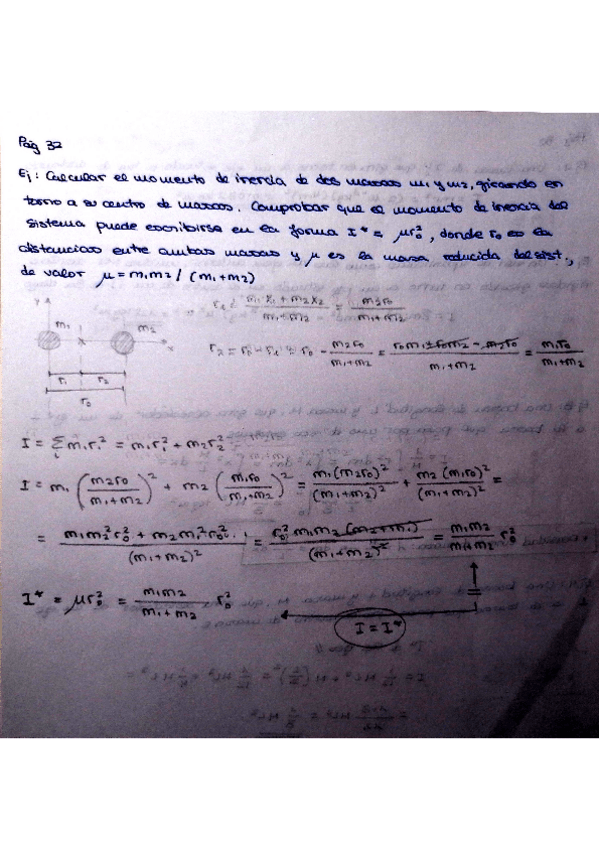 Pág 32
Ej: Calcular el momento de inercia de dos masas m₁ y m₂, girando en
torno a su centro de masas. Comprobar que el momento de inercia del
sistema puede escribirse en la forma I* = μr₀², donde r₀ es la
distancias entre ambas masas y μ es la masa reducida del sist.,
de valor μ = m₁m₂ / (m₁+m₂)
r₁ = (m₁x₁ + m₂x₂)/(m₁+m₂) = m₂r₀/(m₁+m₂)
y
m₁ m₂
x
r₂ = r₀ - r₁ = r₀ - m₂r₀/(m₁+m₂) = (r₀m₁ + r₀m₂ - m₂r₀)/(m₁+m₂) = m₁r₀/(m₁+m₂)
r₁ r₂
r₀
I = Σᵢ mᵢrᵢ² = m₁r₁² + m₂r₂²
I = m₁ (m₂r₀/(m₁+m₂))² + m₂ (m₁r₀/(m₁+m₂))² = m₁(m₂r₀)²/(m₁+m₂)² + m₂(m₁r₀)²/(m₁+m₂)² =
= (m₁m₂²r₀² + m₂m₁²r₀²)/(m₁+m₂)² = r₀²m₁m₂(m₂+m₁)/(m₁+m₂)² = m₁m₂/(m₁+m₂) r₀²
I* = μr₀² = m₁m₂/(m₁+m₂) r₀²
=
I = I*